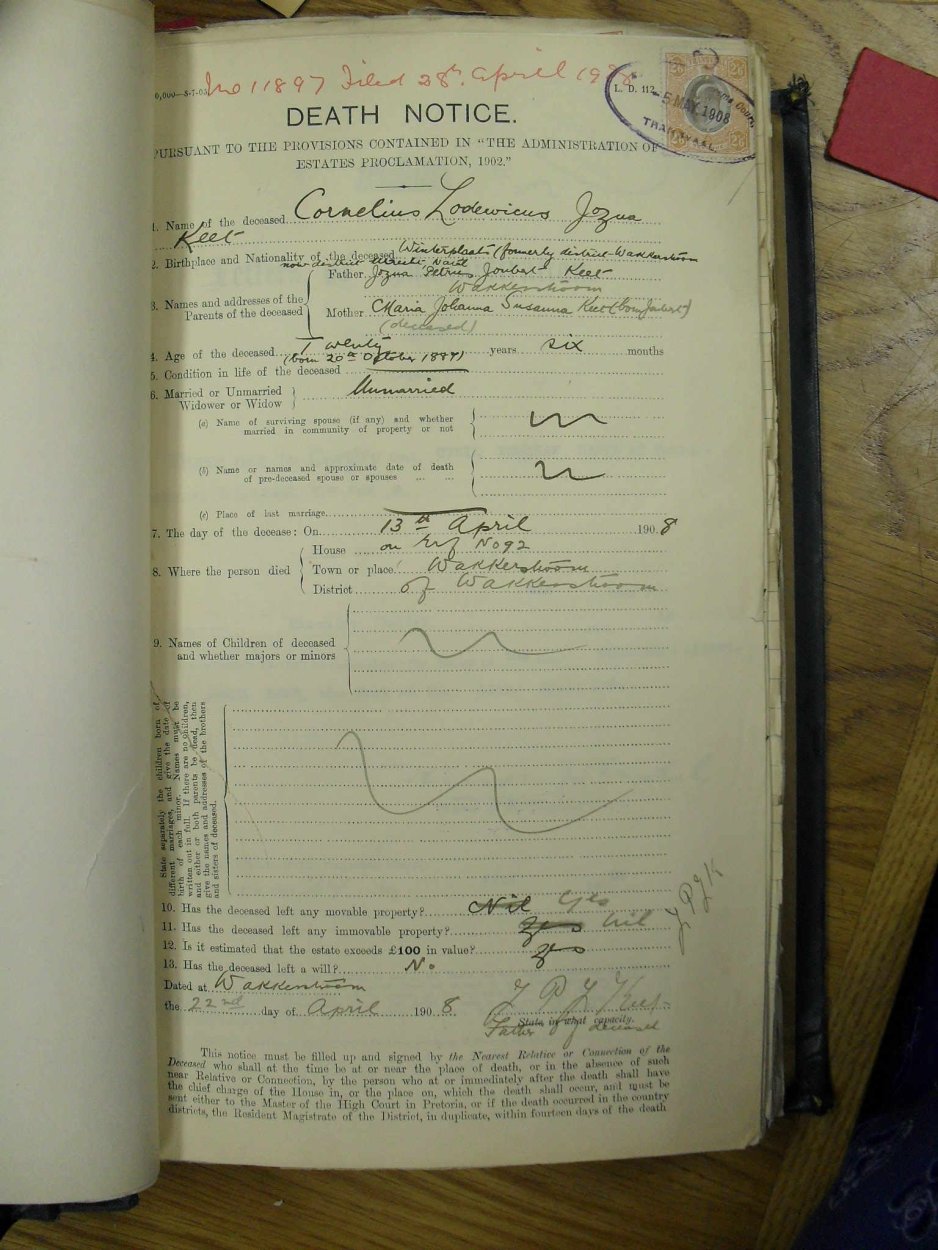 No 11897 Filed 28th April 1908
0,000—8-7-05
L. D. 112
5 MAY 1908
TRANSVAAL
2/6 2/6
DEATH NOTICE.
PURSUANT TO THE PROVISIONS CONTAINED IN "THE ADMINISTRATION OF
ESTATES PROCLAMATION, 1902."
1. Name of the deceased Cornelius Lodewicus Jozua
Keet
2. Birthplace and Nationality of the deceased Winterplaats (formerly district Wakkerstroom
now district Utrecht Natal
3. Names and addresses of the Parents of the deceased
Father Jozua Petrus Joubert Keet
Wakkerstroom
Mother Maria Johanna Susanna Keet (born Joubert)
(deceased)
4. Age of the deceased Twenty years six months
(born 20th October 1887)
5. Condition in life of the deceased
6. Married or Unmarried Unmarried
Widower or Widow
(a) Name of surviving spouse (if any) and whether
married in community of property or not
(b) Name or names and approximate date of death
of pre-deceased spouse or spouses ... ...
(c) Place of last marriage
7. The day of the decease: On 13th April 1908
8. Where the person died
House on Erf No 92
Town or place Wakkerstroom
District of Wakkerstroom
9. Names of Children of deceased
and whether majors or minors
State separately the children born of
different marriages, and give the date of
birth of each minor. Names must be
written out in full. If there are no children,
and either or both parents be dead, then
give the names and addresses of the brothers
and sisters of deceased.
10. Has the deceased left any movable property? Nil Yes
11. Has the deceased left any immovable property? Yes Nil
J P J K
12. Is it estimated that the estate exceeds £100 in value? Yes
13. Has the deceased left a will? No
Dated at Wakkerstroom
the 22nd day of April 1908 J P J Keet
State in what capacity.
Father of deceased
This notice must be filled up and signed by the Nearest Relative or Connection of the
Deceased who shall at the time be at or near the place of death, or in the absence of such
near Relative or Connection, by the person who at or immediately after the death shall have
the chief charge of the House in, or the place on, which the death shall occur, and must be
sent either to the Master of the High Court in Pretoria, or if the death occurred in the country
districts, the Resident Magistrate of the District, in duplicate, within fourteen days of the death